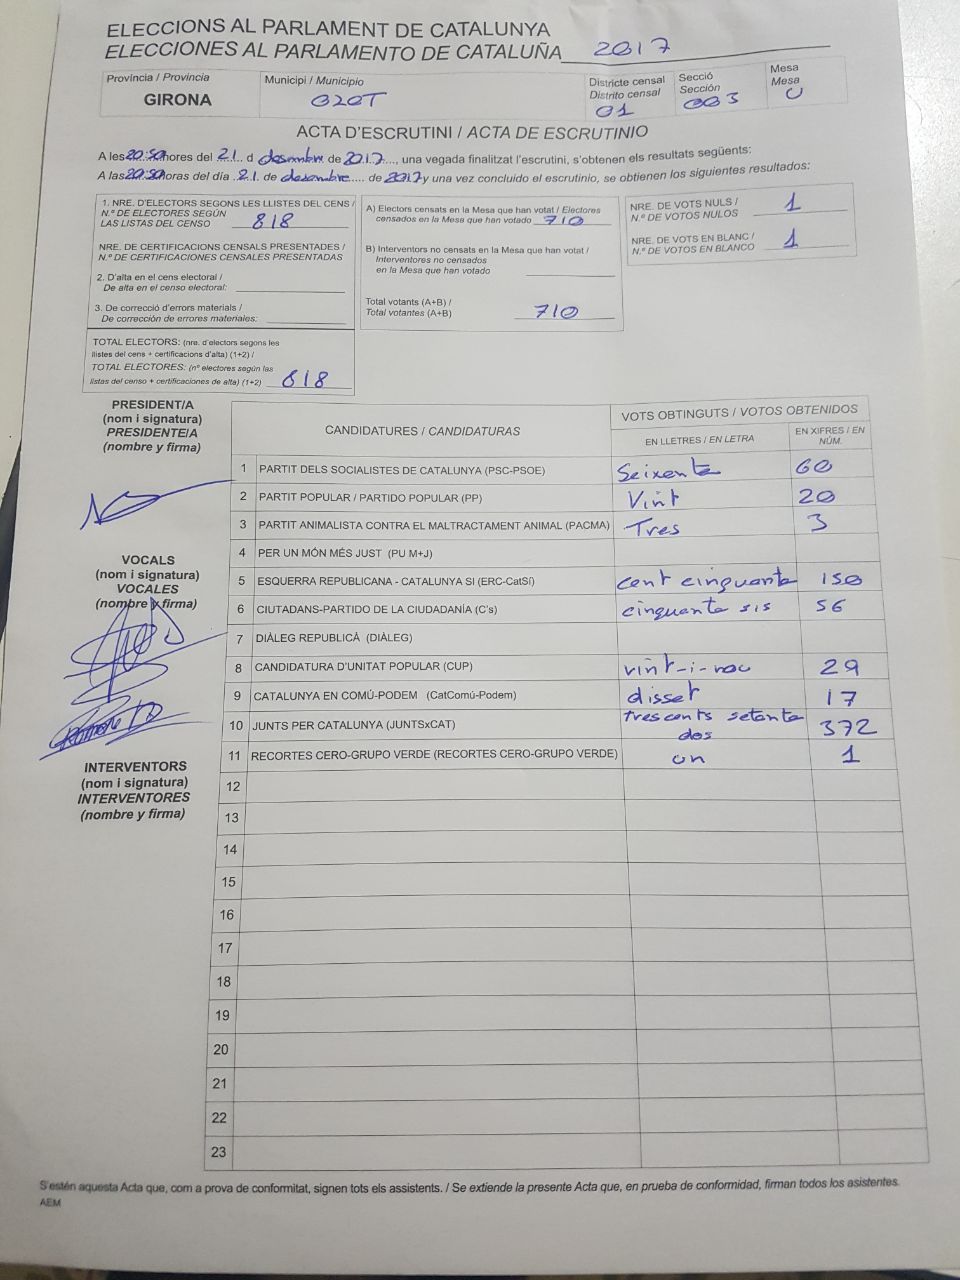 ELECCIONS AL PARLAMENT DE CATALUNYA
ELECCIONES AL PARLAMENTO DE CATALUÑA 2017
Província / Provincia
GIRONA
Municipi / Municipio
OLOT
Districte censal
Distrito censal
01
Secció
Sección
003
Mesa
Mesa
U
ACTA D'ESCRUTINI / ACTA DE ESCRUTINIO
A les 20:50 hores del 21 d desembre de 2017, una vegada finalitzat l'escrutini, s'obtenen els resultats següents:
A las 20:50 horas del día 21 de desembre de 2017 y una vez concluido el escrutinio, se obtienen los siguientes resultados:
1. NRE. D'ELECTORS SEGONS LES LLISTES DEL CENS /
N.º DE ELECTORES SEGÚN
LAS LISTAS DEL CENSO 818
NRE. DE CERTIFICACIONS CENSALS PRESENTADES /
N.º DE CERTIFICACIONES CENSALES PRESENTADAS
2. D'alta en el cens electoral /
De alta en el censo electoral:
3. De correcció d'errors materials /
De corrección de errores materiales:
TOTAL ELECTORS: (nre. d'electors segons les
llistes del cens + certificacions d'alta) (1+2) /
TOTAL ELECTORES: (nº electores según las
listas del censo + certificaciones de alta) (1+2) 818
A) Electors censats en la Mesa que han votat / Electores
censados en la Mesa que han votado 710
B) Interventors no censats en la Mesa que han votat /
Interventores no censados
en la Mesa que han votado
Total votants (A+B) /
Total votantes (A+B) 710
NRE. DE VOTS NULS /
N.º DE VOTOS NULOS 1
NRE. DE VOTS EN BLANC /
N.º DE VOTOS EN BLANCO 1
PRESIDENT/A
(nom i signatura)
PRESIDENTE/A
(nombre y firma)
VOCALS
(nom i signatura)
VOCALES
(nombre y firma)
INTERVENTORS
(nom i signatura)
INTERVENTORES
(nombre y firma)
CANDIDATURES / CANDIDATURAS
VOTS OBTINGUTS / VOTOS OBTENIDOS
EN LLETRES / EN LETRA
EN XIFRES / EN NÚM.
1 PARTIT DELS SOCIALISTES DE CATALUNYA (PSC-PSOE) Seixenta 60
2 PARTIT POPULAR / PARTIDO POPULAR (PP) Vint 20
3 PARTIT ANIMALISTA CONTRA EL MALTRACTAMENT ANIMAL (PACMA) Tres 3
4 PER UN MÓN MÉS JUST (PU M+J)
5 ESQUERRA REPUBLICANA - CATALUNYA SI (ERC-CatSí) cent cinquanta 150
6 CIUTADANS-PARTIDO DE LA CIUDADANÍA (C's) cinquanta sis 56
7 DIÀLEG REPUBLICÀ (DIÀLEG)
8 CANDIDATURA D'UNITAT POPULAR (CUP) vint-i-nou 29
9 CATALUNYA EN COMÚ-PODEM (CatComú-Podem) disset 17
10 JUNTS PER CATALUNYA (JUNTSxCAT) trescents setanta dos 372
11 RECORTES CERO-GRUPO VERDE (RECORTES CERO-GRUPO VERDE) un 1
12
13
14
15
16
17
18
19
20
21
22
23
S'estén aquesta Acta que, com a prova de conformitat, signen tots els assistents. / Se extiende la presente Acta que, en prueba de conformidad, firman todos los asistentes.
AEM